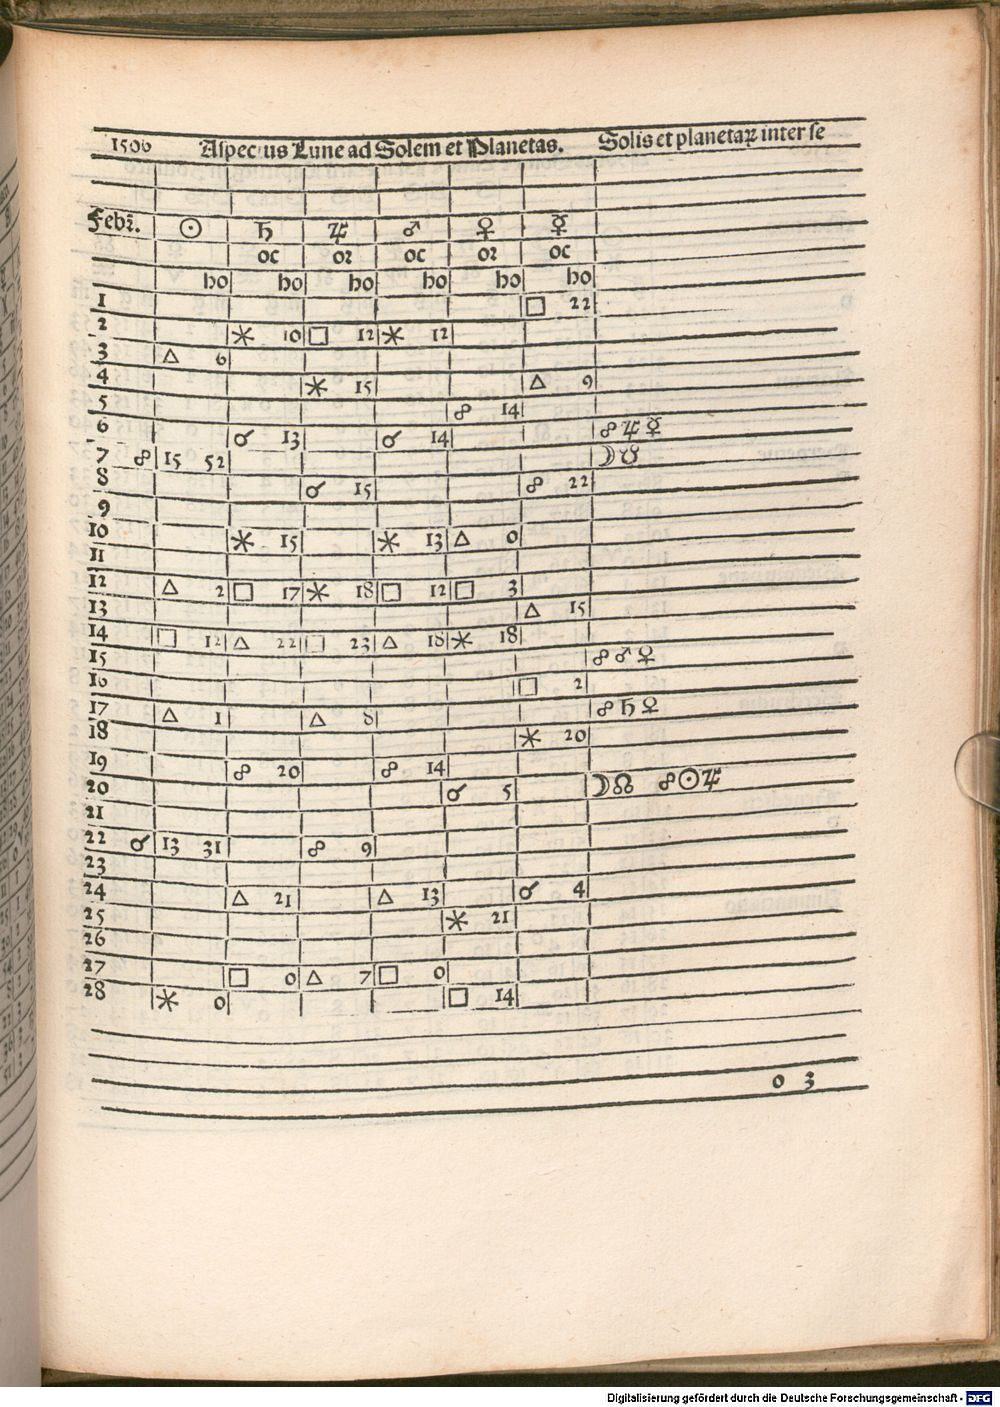 1506 Aspectus Lune ad Solem et Planetas. Solis et planetaꝝ inter se
Febr̄. ☉ ♄ ♃ ♂ ♀ ☿
oc or oc or oc
ho ho ho ho ho ho
1 □ 22
2 ⚹ 10 □ 12 ⚹ 12
3 △ 6
4 ⚹ 15 △ 9
5 ☍ 14
6 ☌ 13 ☌ 14 ☍ ♃ ☿
7 ☍ 15 52 ☽ ☋
8 ☌ 15 ☍ 22
9
10 ⚹ 15 ⚹ 13 △ 0
11
12 △ 2 □ 17 ⚹ 18 □ 12 □ 3
13 △ 15
14 □ 12 △ 22 □ 23 △ 18 ⚹ 18
15 ☍ ♂ ♀
16 □ 2
17 △ 1 △ 8 ☍ ♄ ♀
18 ⚹ 20
19 ☍ 20 ☍ 14
20 ☌ 5 ☽ ☊ ☍ ☉ ♃
21
22 ☌ 13 31 ☍ 9
23
24 △ 21 △ 13 ☌ 4
25 ⚹ 21
26
27 □ 0 △ 7 □ 0
28 ⚹ 0 □ 14
0 3
Digitalisierung gefördert durch die Deutsche Forschungsgemeinschaft - DFG